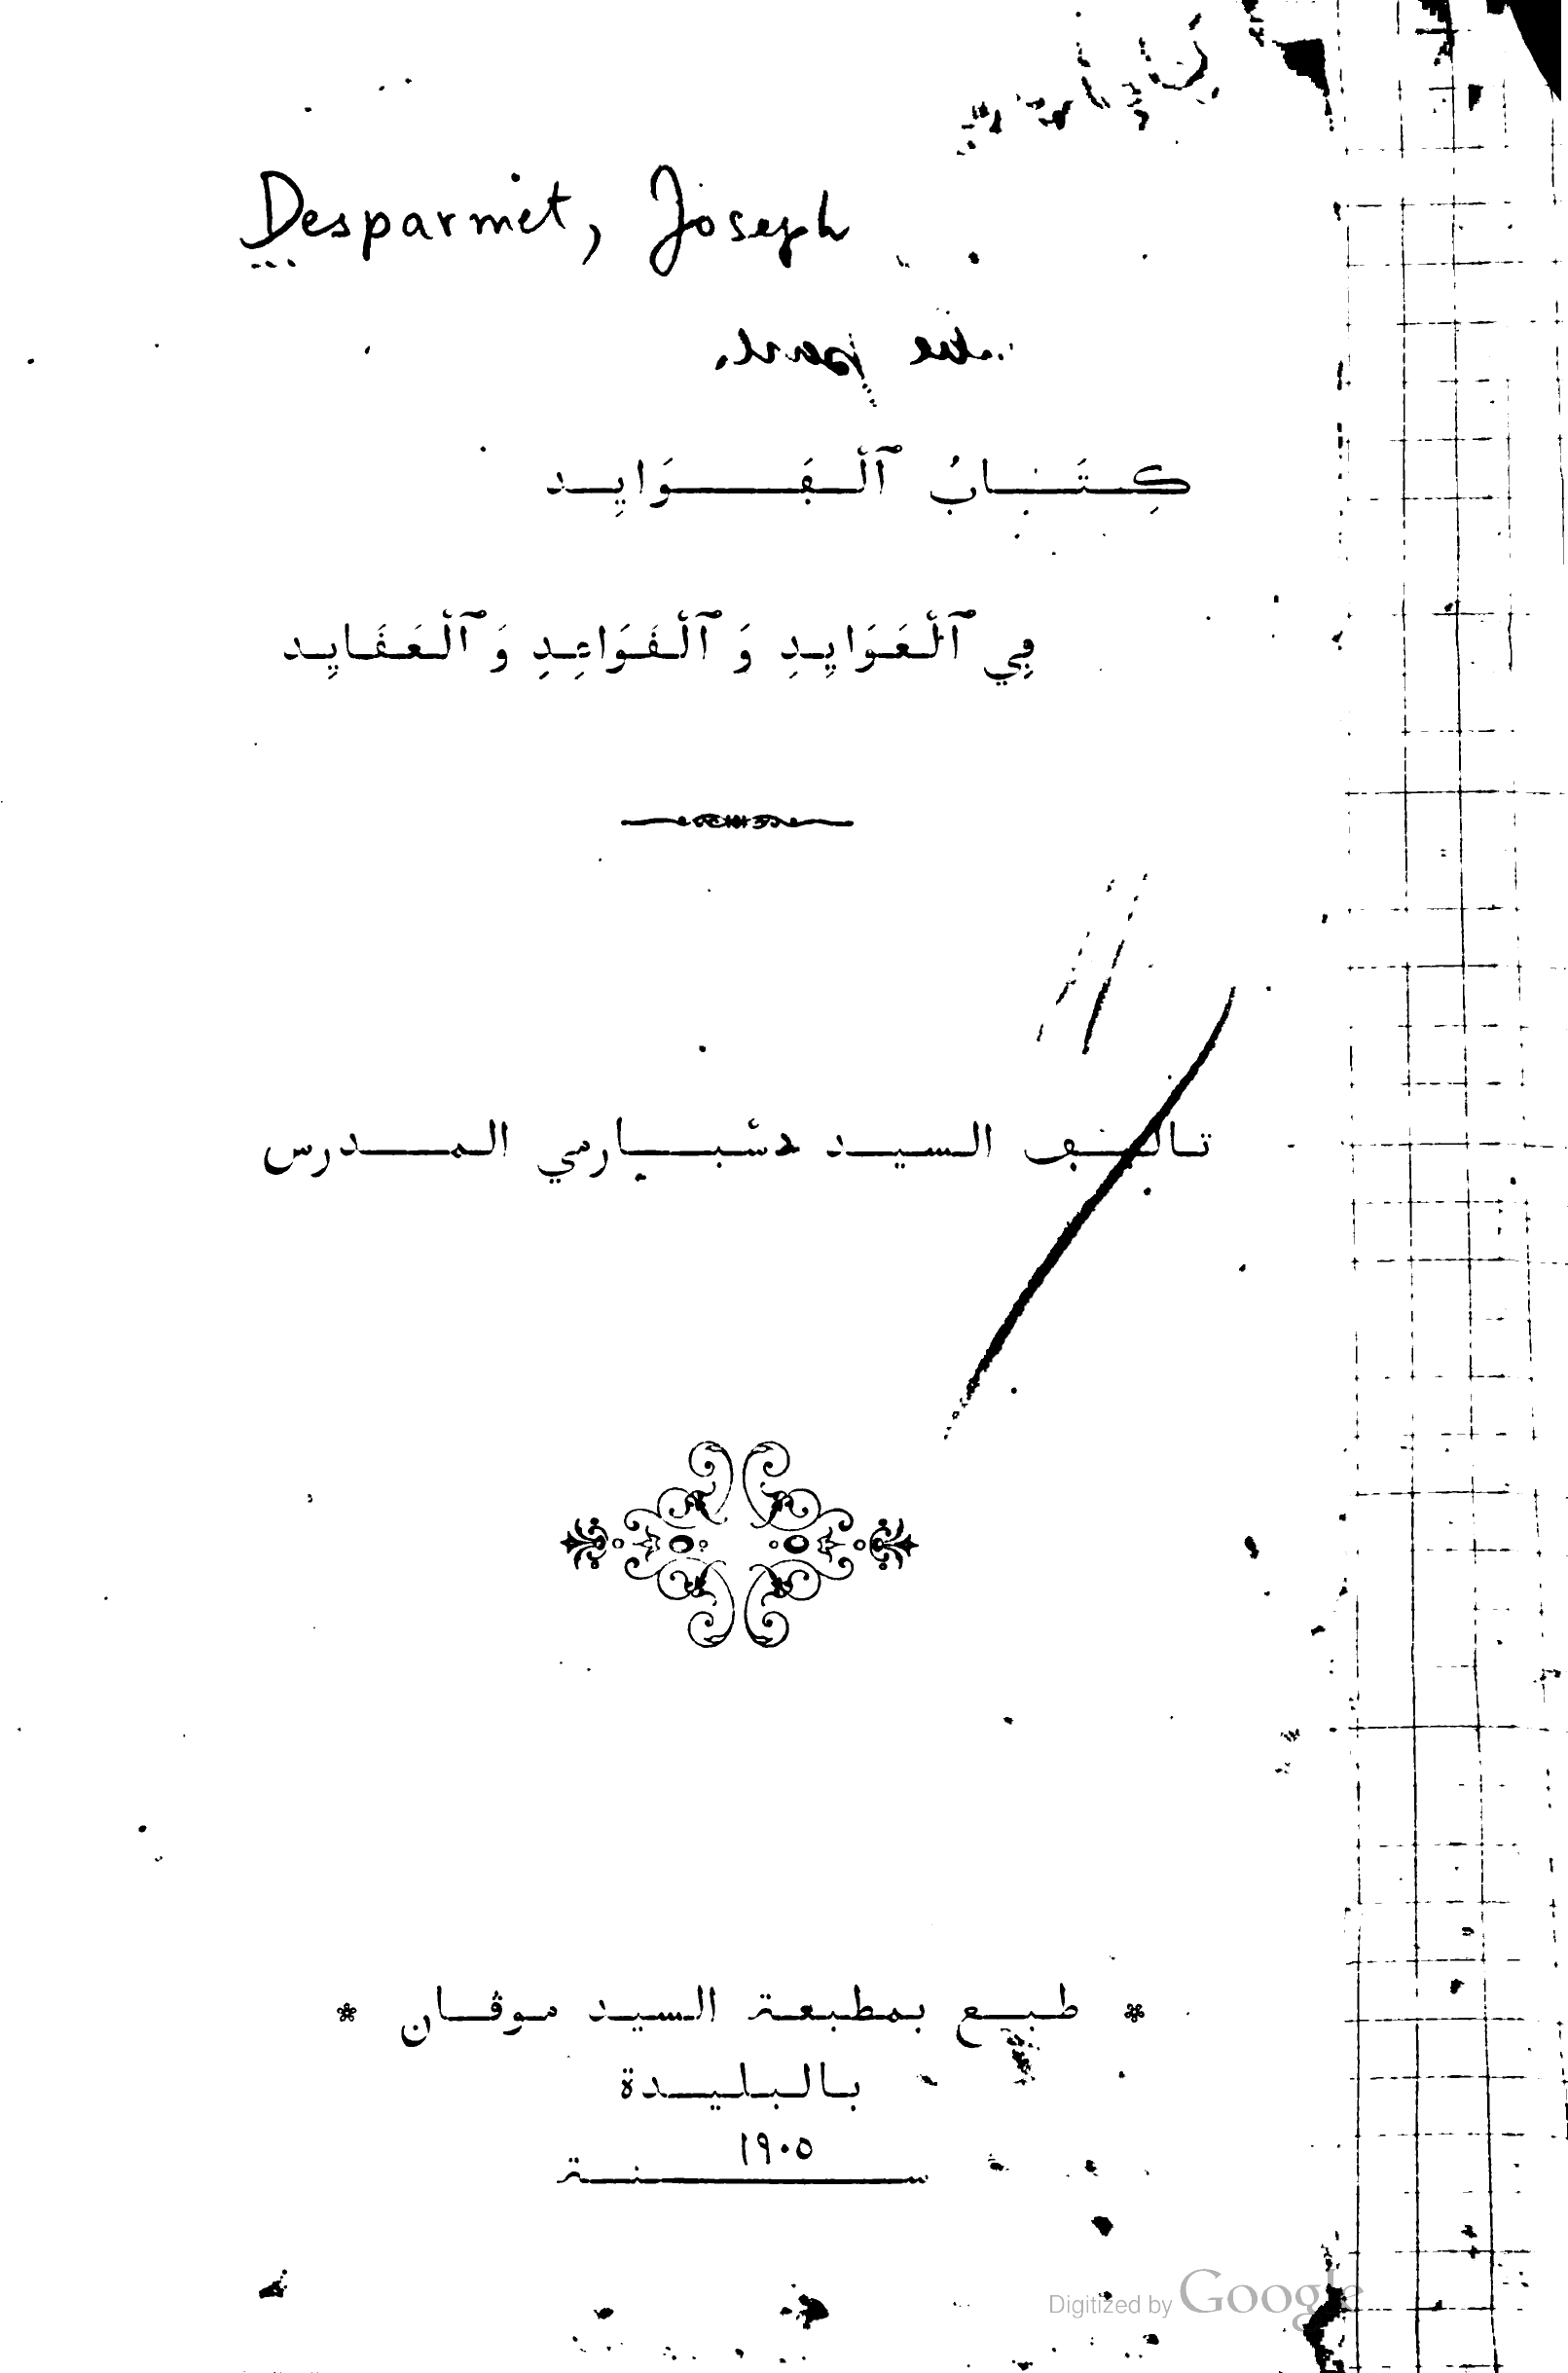 Desparmet, Joseph
كِـتَـٰابُ ٱلْـڢَـوَايِـد
ڢِي ٱلْعَوَايِدِ وَ ٱلْڧَوَاعِدِ وَ ٱلْعَڧَايِد
تاليڢ السيد دشبارمي المدرس
* طبع بمطبعة السيد موڨان *
بالبليدة
سنة ١٩٠٥
Digitized by Google